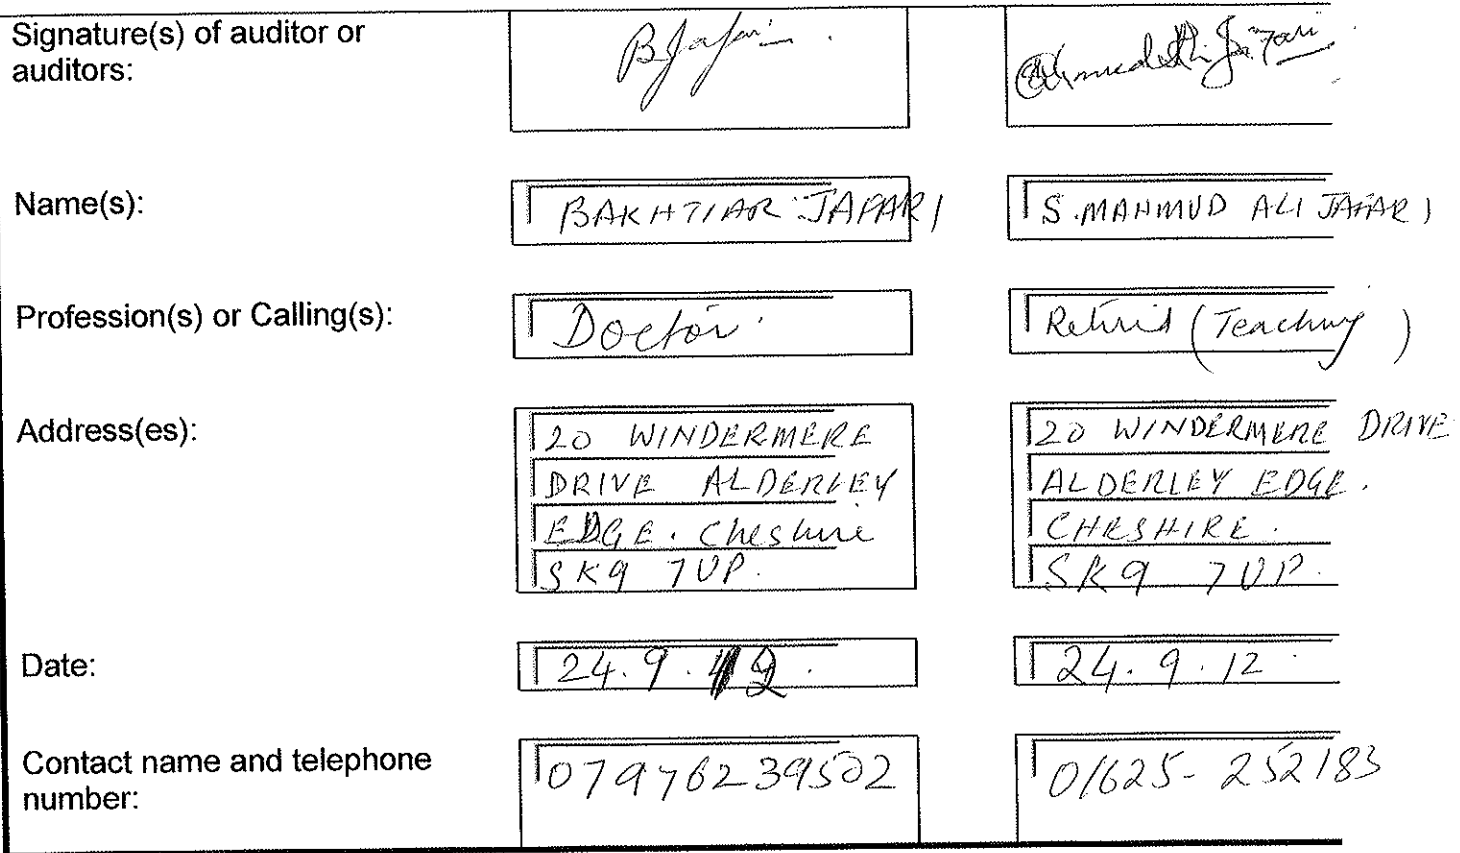 Signature(s) of auditor or
auditors:
BJafari.
Name(s):
BAKHTIAR JAFARI
S. MAHMUD ALI JAFARI
Profession(s) or Calling(s):
Doctor.
Retired (Teaching)
Address(es):
20 WINDERMERE
DRIVE ALDERLEY
EDGE. Cheshire
SK9 7UP.
20 WINDERMERE DRIVE
ALDERLEY EDGE.
CHESHIRE.
SK9 7UP.
Date:
24.9.12.
24.9.12
Contact name and telephone
number:
07976239502
01625-252183